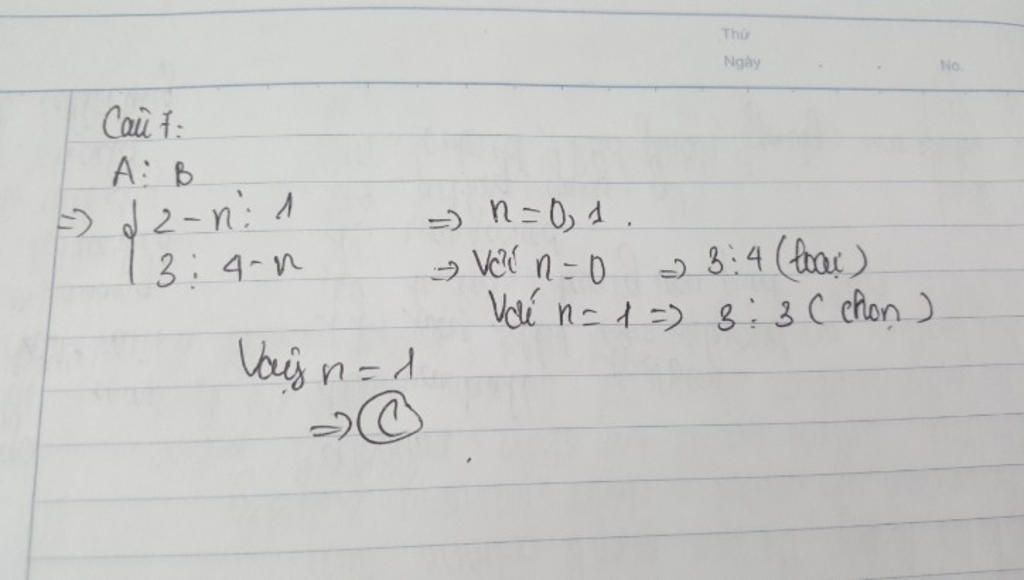 Thứ
Ngày . . No.
Câu 7:
A ⋮ B
=> { 2 - n ⋮ 1 => n = 0, 1 .
3 ⋮ 4 - n => Với n = 0 => 3 ⋮ 4 (loại)
Với n = 1 => 3 ⋮ 3 (chọn)
Vậy n = 1
=> C